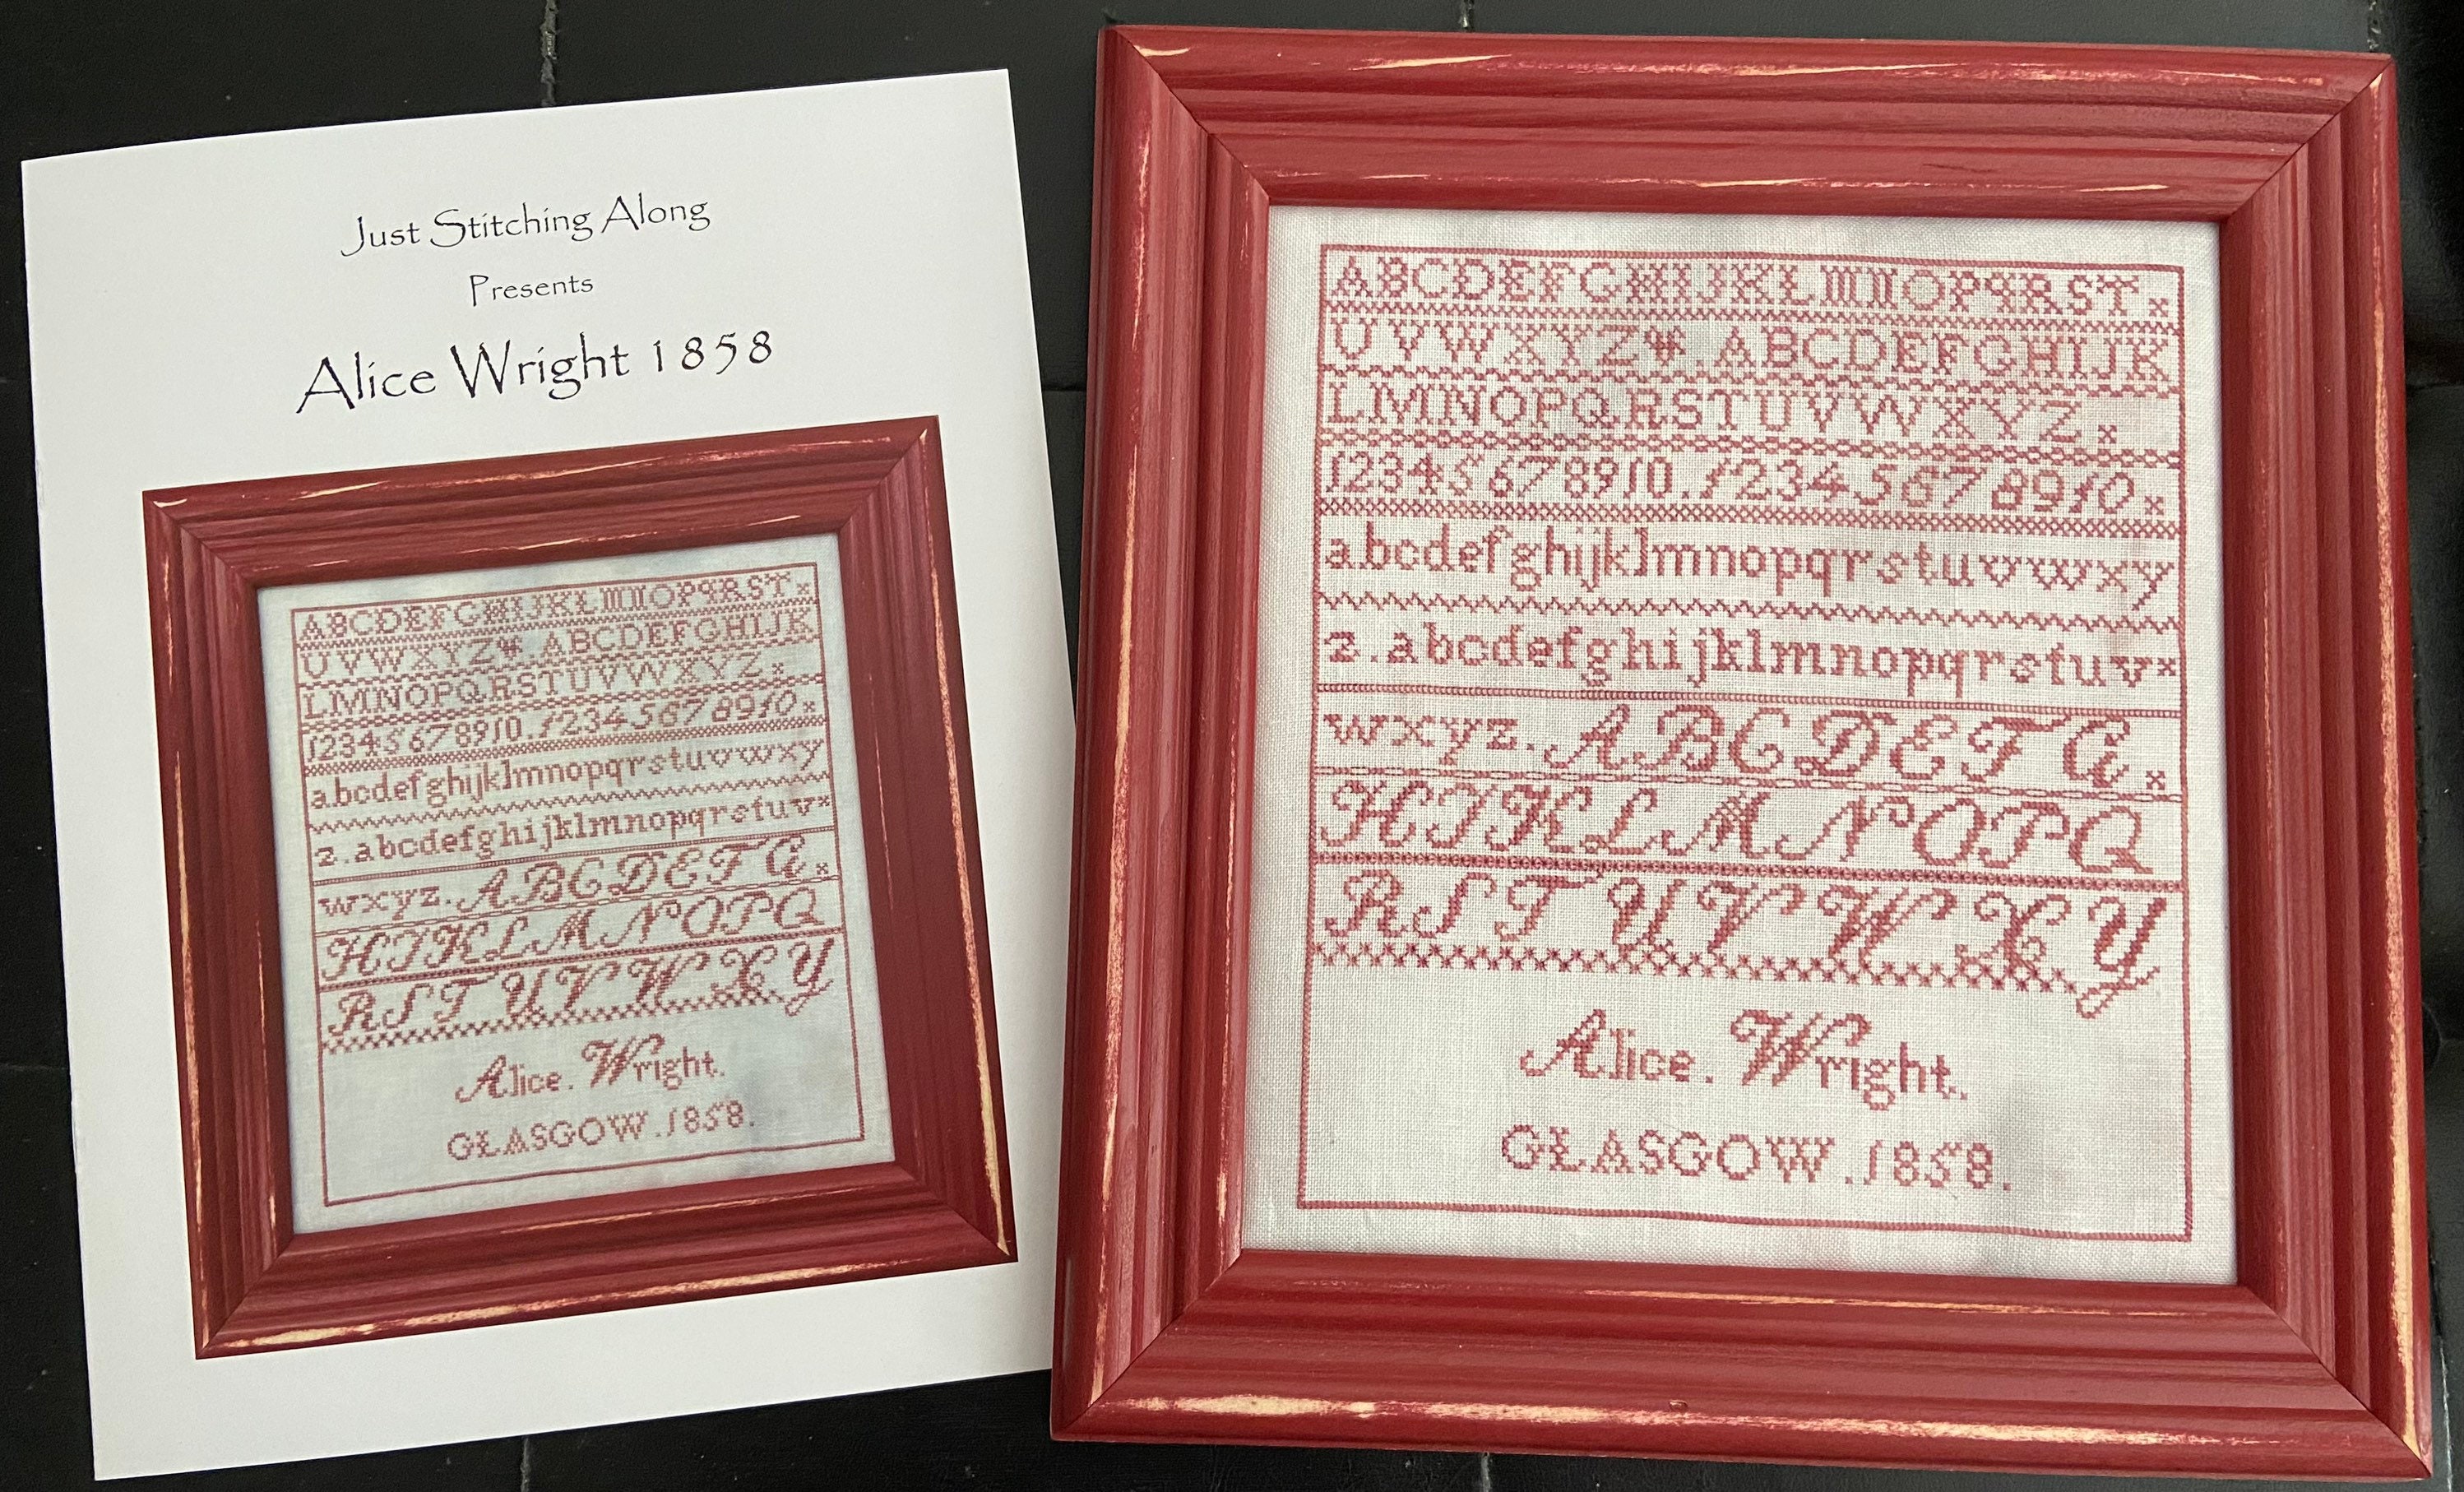 Just Stitching Along
Presents
Alice Wright 1858
ABCDEFGHIJKLMNOPQRST
UVWXYZ.ABCDEFGHIJK
LMNOPQRSTUVWXYZ.
12345678910.12345678910
abcdefghijklmnopqrstuvwxy
z.abcdefghijklmnopqrstuv
wxyz.ABCDEFG
HIKLMNOPQ
RSTUVWXY
Alice. Wright.
GLASGOW.1858.
ABCDEFGHIJKLMNOPQRST
UVWXYZ.ABCDEFGHIJK
LMNOPQRSTUVWXYZ.
12345678910.12345678910
abcdefghijklmnopqrstuvwxy
z.abcdefghijklmnopqrstuv
wxyz.ABCDEFG
HIKLMNOPQ
RSTUVWXY
Alice. Wright.
GLASGOW.1858.